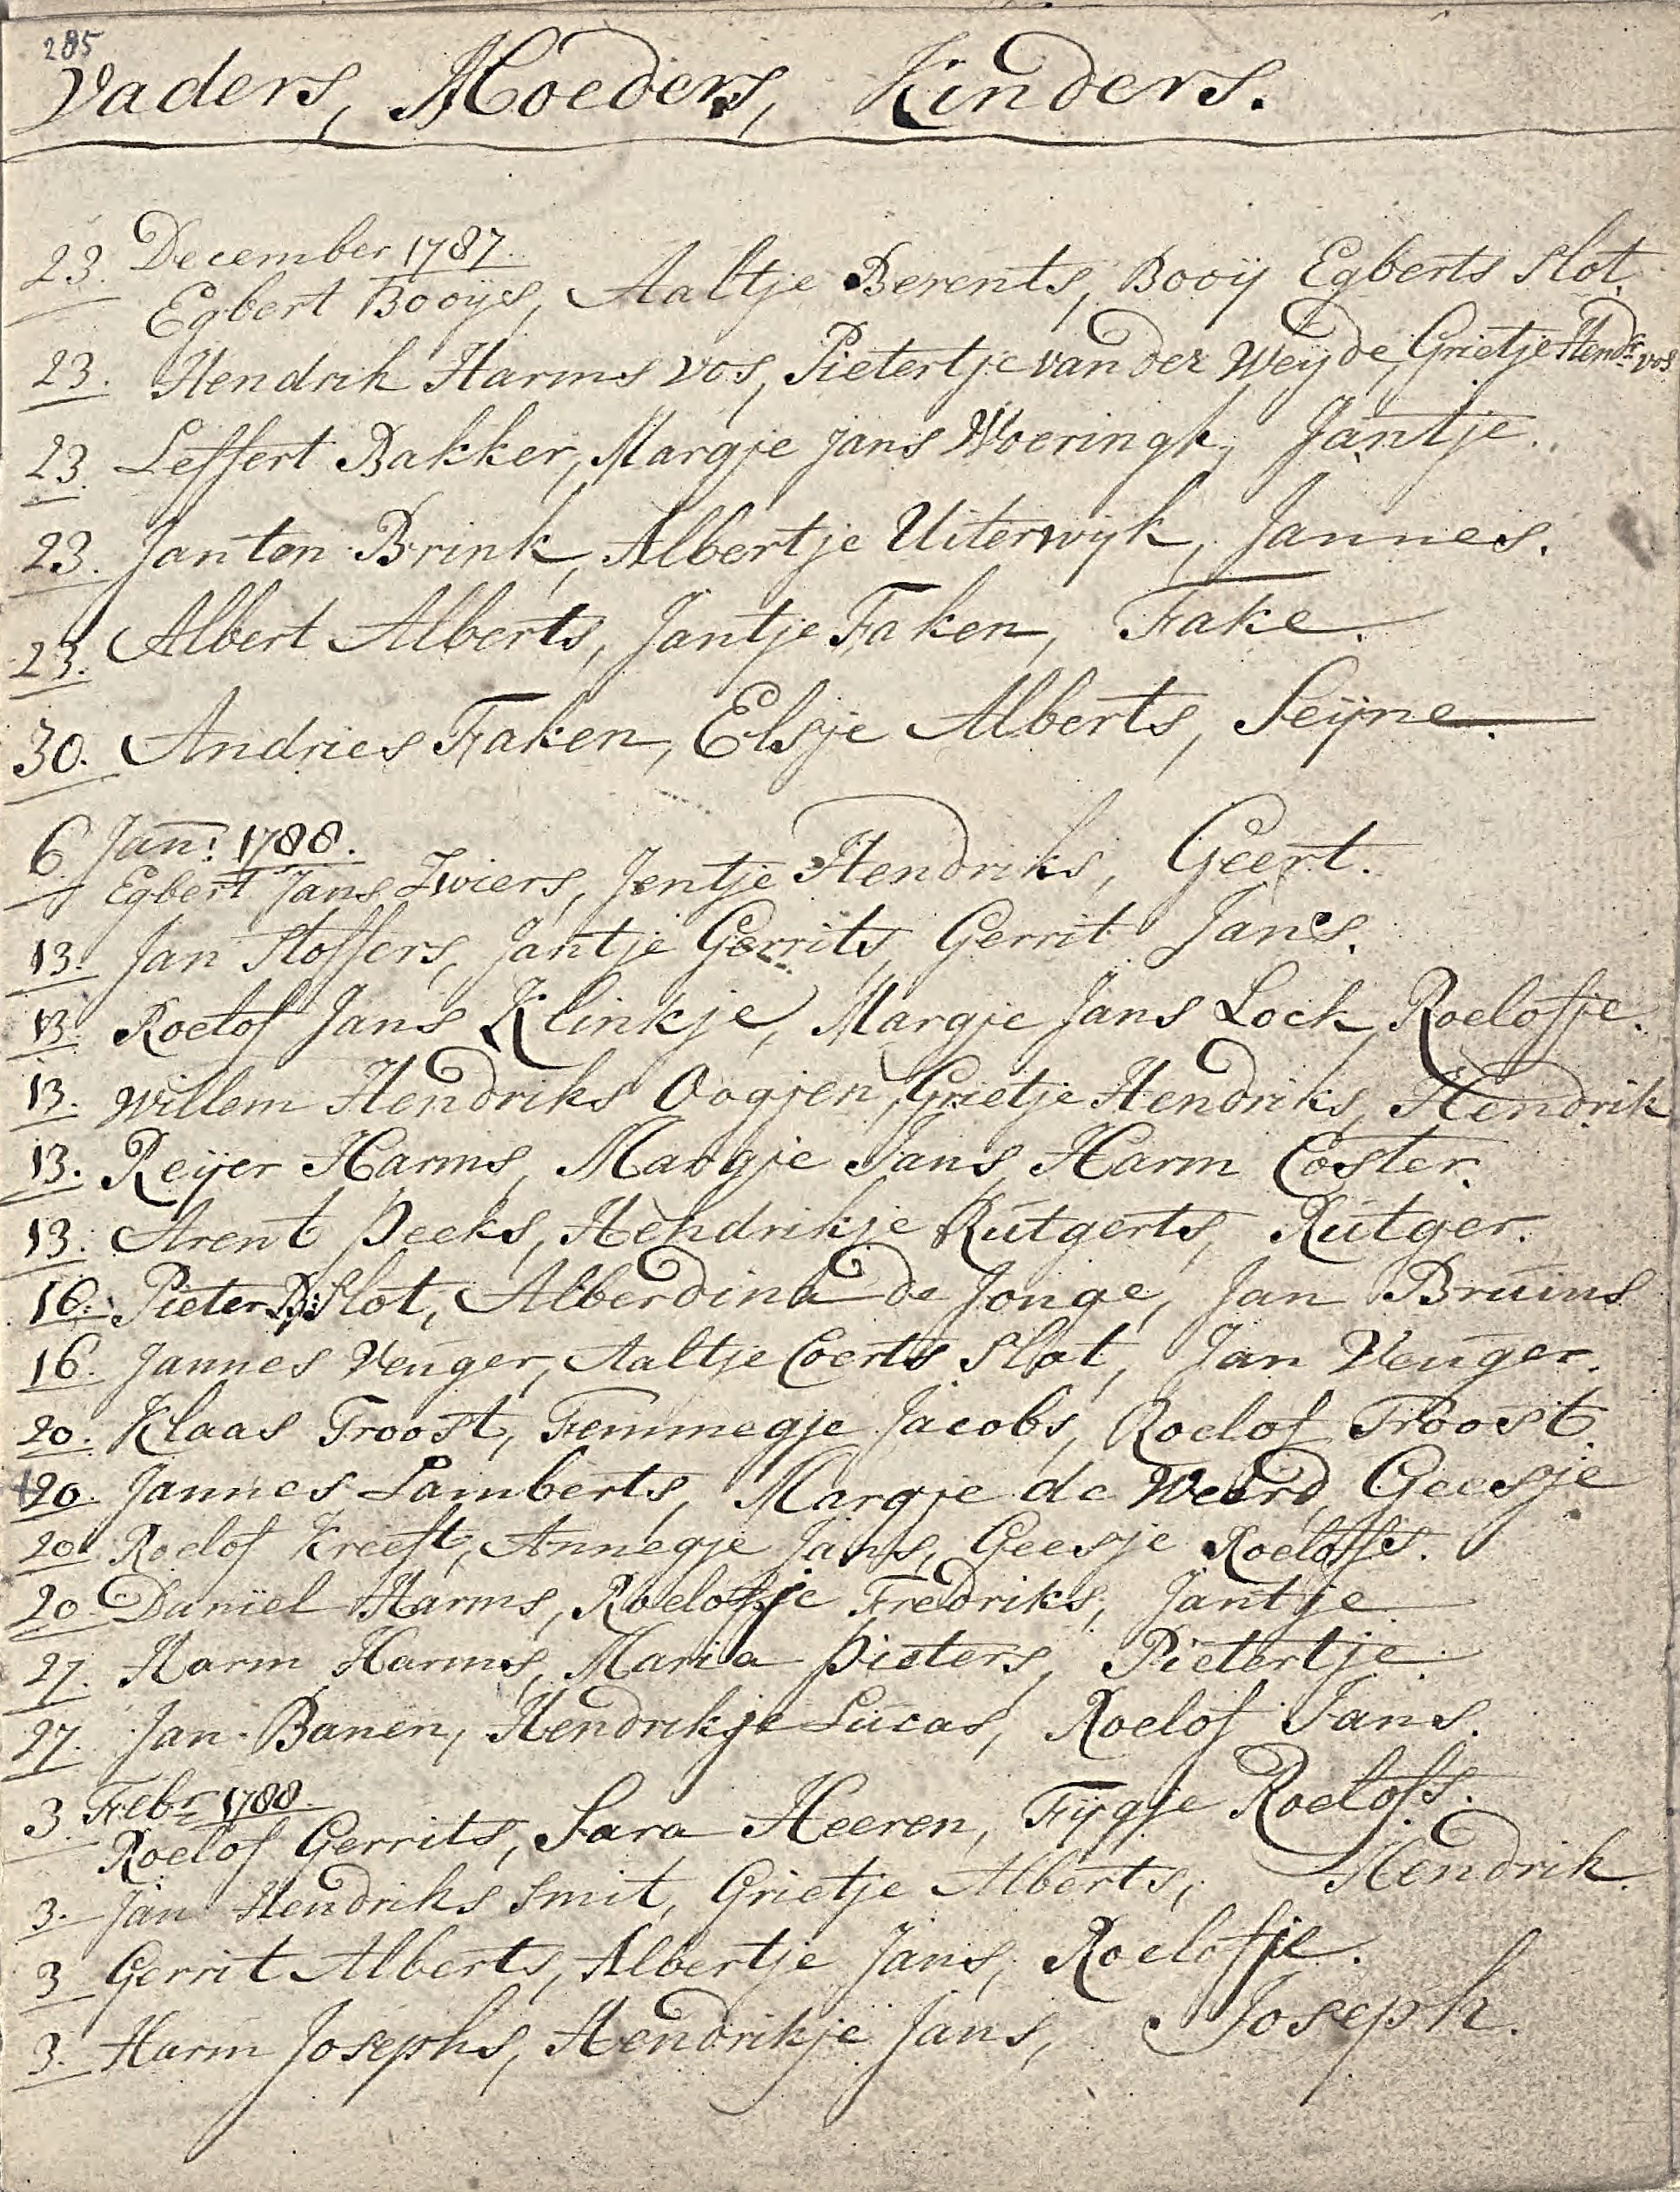 285
Vaders, Moeders, Kinders.
December 1787.
23. Egbert Booijs, Aaltje Berents, Booij Egberts Slot.
23. Hendrik Harms Vos, Pietertje van der Weijde, Grietje Hendr. Vos
23. Leffert Bakker, Margje Jans Woeringh, Jantje.
23. Jan ten Brink, Albertje Uiterwijk, Jannes.
23. Albert Alberts, Jantje Faken, Fake.
30. Andries Faken, Elsje Alberts, Seijne.
6 Jan: 1788.
Egbert Jans Zwiers, Jentje Hendriks, Geert.
13. Jan Stoffers, Jantje Gerrits, Gerrit Jans.
13. Roelof Jans Klinkje, Margje Jans Lock, Roelofje.
13. Willem Hendriks Oogjen, Grietje Hendriks, Hendrik
13. Reijer Harms, Margje Jans, Harm Coster.
13. Arent Peeks, Hendrikje Rutgerts, Rutger.
16. Pieter B: Slot, Alberdina de Jonge, Jan Bruins
16. Jannes Venger, Aaltje Coerts Slot, Jan Venger.
20. Klaas Troost, Femmegje Jacobs, Roelof Troost.
+20. Jannes Lamberts, Margje de Weerd, Geesje
20 Roelof Kreeft, Annegje Jans, Geesje Roelofs.
20 Daniël Harms, Roelofje Fredriks, Jantje
27. Harm Harms, Maria Pieters, Pietertje.
27. Jan Banen, Hendrikje Lucas, Roelof Jans.
3. Febr. 1788.
Roelof Gerrits, Sara Heeren, Fijgje Roelofs.
3. Jan Hendriks Smit, Grietje Alberts, Hendrik.
3 Gerrit Alberts, Albertje Jans, Roelofje.
3. Harm Josephs, Hendrikje Jans, Joseph.